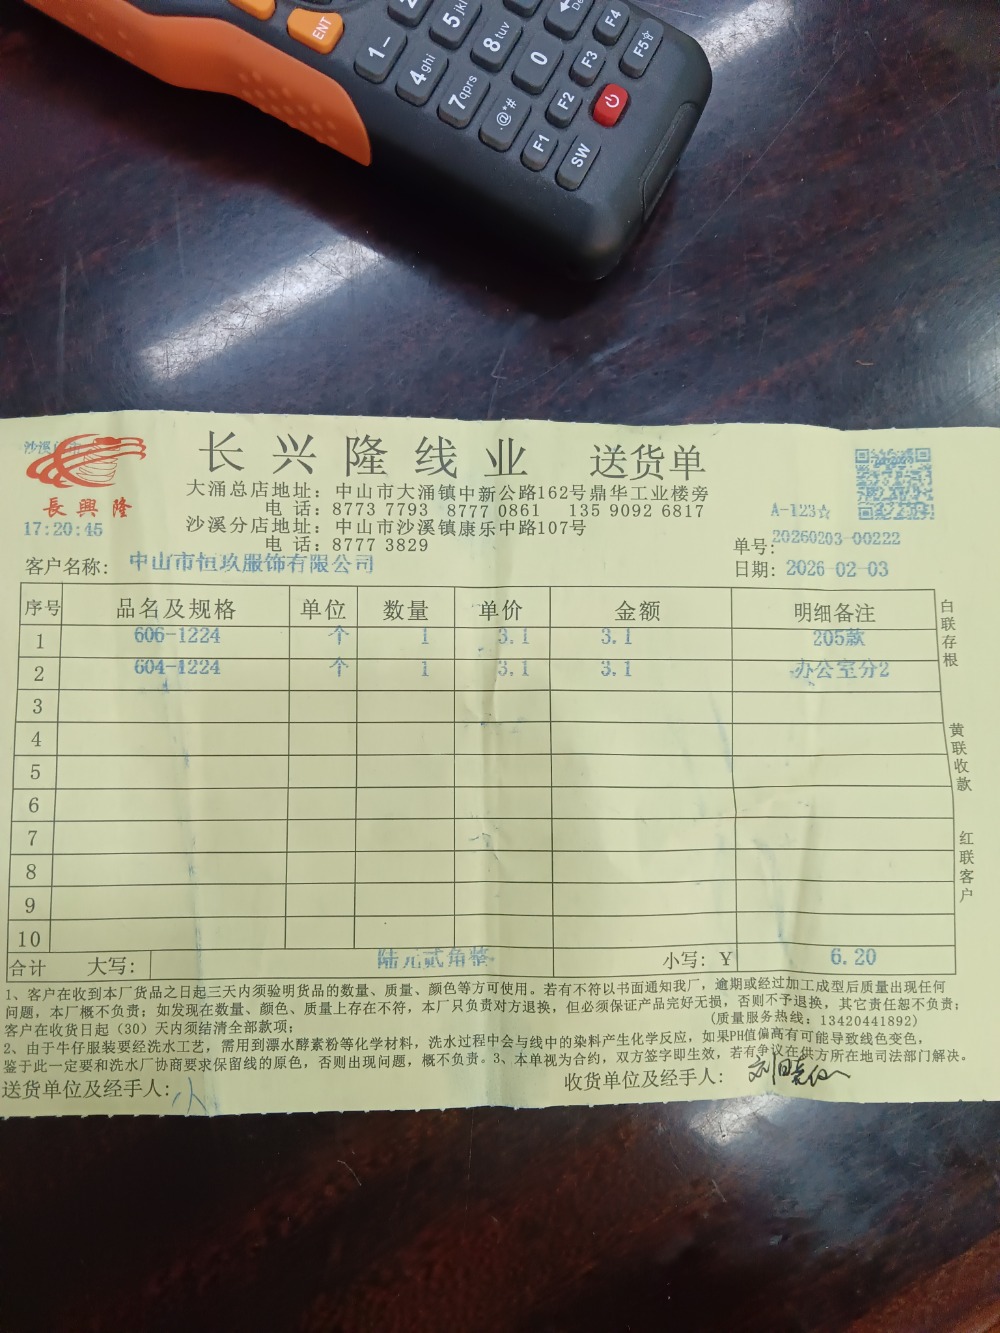 ENT
1 —
4 ghi
5 jkl
7 pqrs
8 tuv
.@*#
0
F1
F2
F3
F4
F5
SW
長興隆
17:20:45
长兴隆线业 送货单
大涌总店地址：中山市大涌镇中新公路162号鼎华工业楼旁
电 话：8773 7793 8777 0861 135 9092 6817
沙溪分店地址：中山市沙溪镇康乐中路107号
电 话：8777 3829
A-123☆
单号：20260203-00222
客户名称：中山市恒玖服饰有限公司
日期：2026-02-03
序号 品名及规格 单位 数量 单价 金额 明细备注
1 606-1224 个 1 3.1 3.1 205款
2 604-1224 个 1 3.1 3.1 办公室分2
3
4
5
6
7
8
9
10
合计 大写： 陆元贰角整 小写：Y 6.20
白联存根
黄联收款
红联客户
1、客户在收到本厂货品之日起三天内须验明货品的数量、质量、颜色等方可使用。若有不符以书面通知我厂，逾期或经过加工成型后质量出现任何
问题，本厂概不负责；如发现在数量、颜色、质量上存在不符，本厂只负责对方退换，但必须保证产品完好无损，否则不予退换，其它责任恕不负责；
客户在收货日起（30）天内须结清全部款项；
(质量服务热线：13420441892)
2、由于牛仔服装要经洗水工艺，需用到漂水酵素粉等化学材料，洗水过程中会与线中的染料产生化学反应，如果PH值偏高有可能导致线色变色，
鉴于此一定要和洗水厂协商要求保留线的原色，否则出现问题，概不负责。3、本单视为合约，双方签字即生效，若有争议在供方所在地司法部门解决。
送货单位及经手人：
收货单位及经手人：